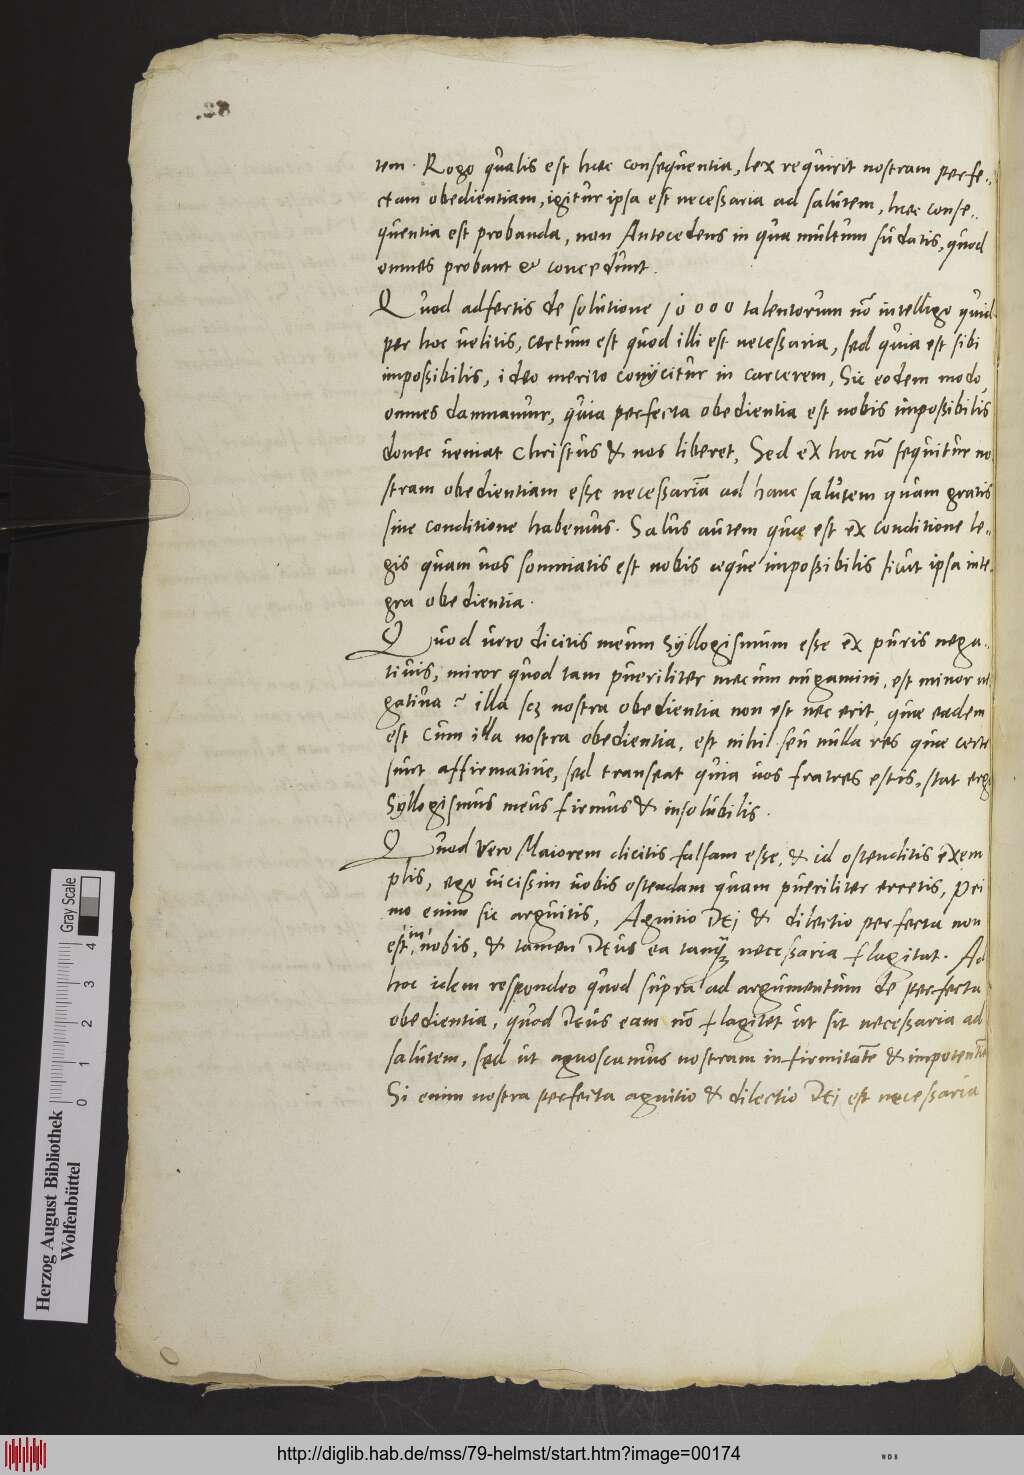 tem. Rogo qualis est haec consequentia, lex requirit nostram perfe-
ctam obedientiam, igitur ipsa est necessaria ad salutem, haec conse-
quentia est probanda, non Antecedens in qua multum sudatis, quod
omnes probant & concedunt.
Quod adfertis de solutione 10000 talentorum nō intelligo quid
per hoc uelitis, certum est quod illi est necessaria, sed quia est sibi
impoßibilis, ideo merito conijcitur in carcerem, Sic eodem modo
omnes damnamur, quia perfecta obedientia est nobis impoßibilis
donec ueniat Christus & nos liberet, Sed ex hoc nō sequitur no
stram obedientiam esse necessariā ad hanc salutem quam gratis
sine conditione habemus. Salus autem quae est ex conditione le-
gis quam uos somniatis est nobis aeque impoßibilis sicut ipsa inte-
gra obedientia.
Quod uero dicitis meum Syllogismum esse ex puris nega-
tiuis, miror quod tam pueriliter mecum nugamini, est minor ne
gatiua? illa scz nostra obedientia non est nec erit, quae eadem
est cum illa nostra obedientia, est nihil seu nulla res quae certe
sunt affirmatiue, sed transeat quia uos fratres estis, stat ergo
Syllogismus meus firmus & insolubilis.
Quod vero Maiorem dicitis falsam esse, & id ostenditis exem
plis, ego uicissim uobis ostendam quam pueriliter erretis, Pri
mo enim sic arguitis, Agnitio Dei & dilectio perfecta non
est in nobis, & tamen Deus ea tanq̃ necessaria flagitat. Ad
hoc idem respondeo quod supra ad argumentum de perfecta
obedientia, quod Deus eam nō flagitet ut sit necessaria ad
salutem, sed ut agnoscamus nostram infirmitatē & impotentiā
Si enim nostra perfecta agnitio & dilectio Dei est necessaria
Herzog August Bibliothek
Wolfenbüttel
0 1 2 3 4
Gray Scale
http://diglib.hab.de/mss/79-helmst/start.htm?image=00174